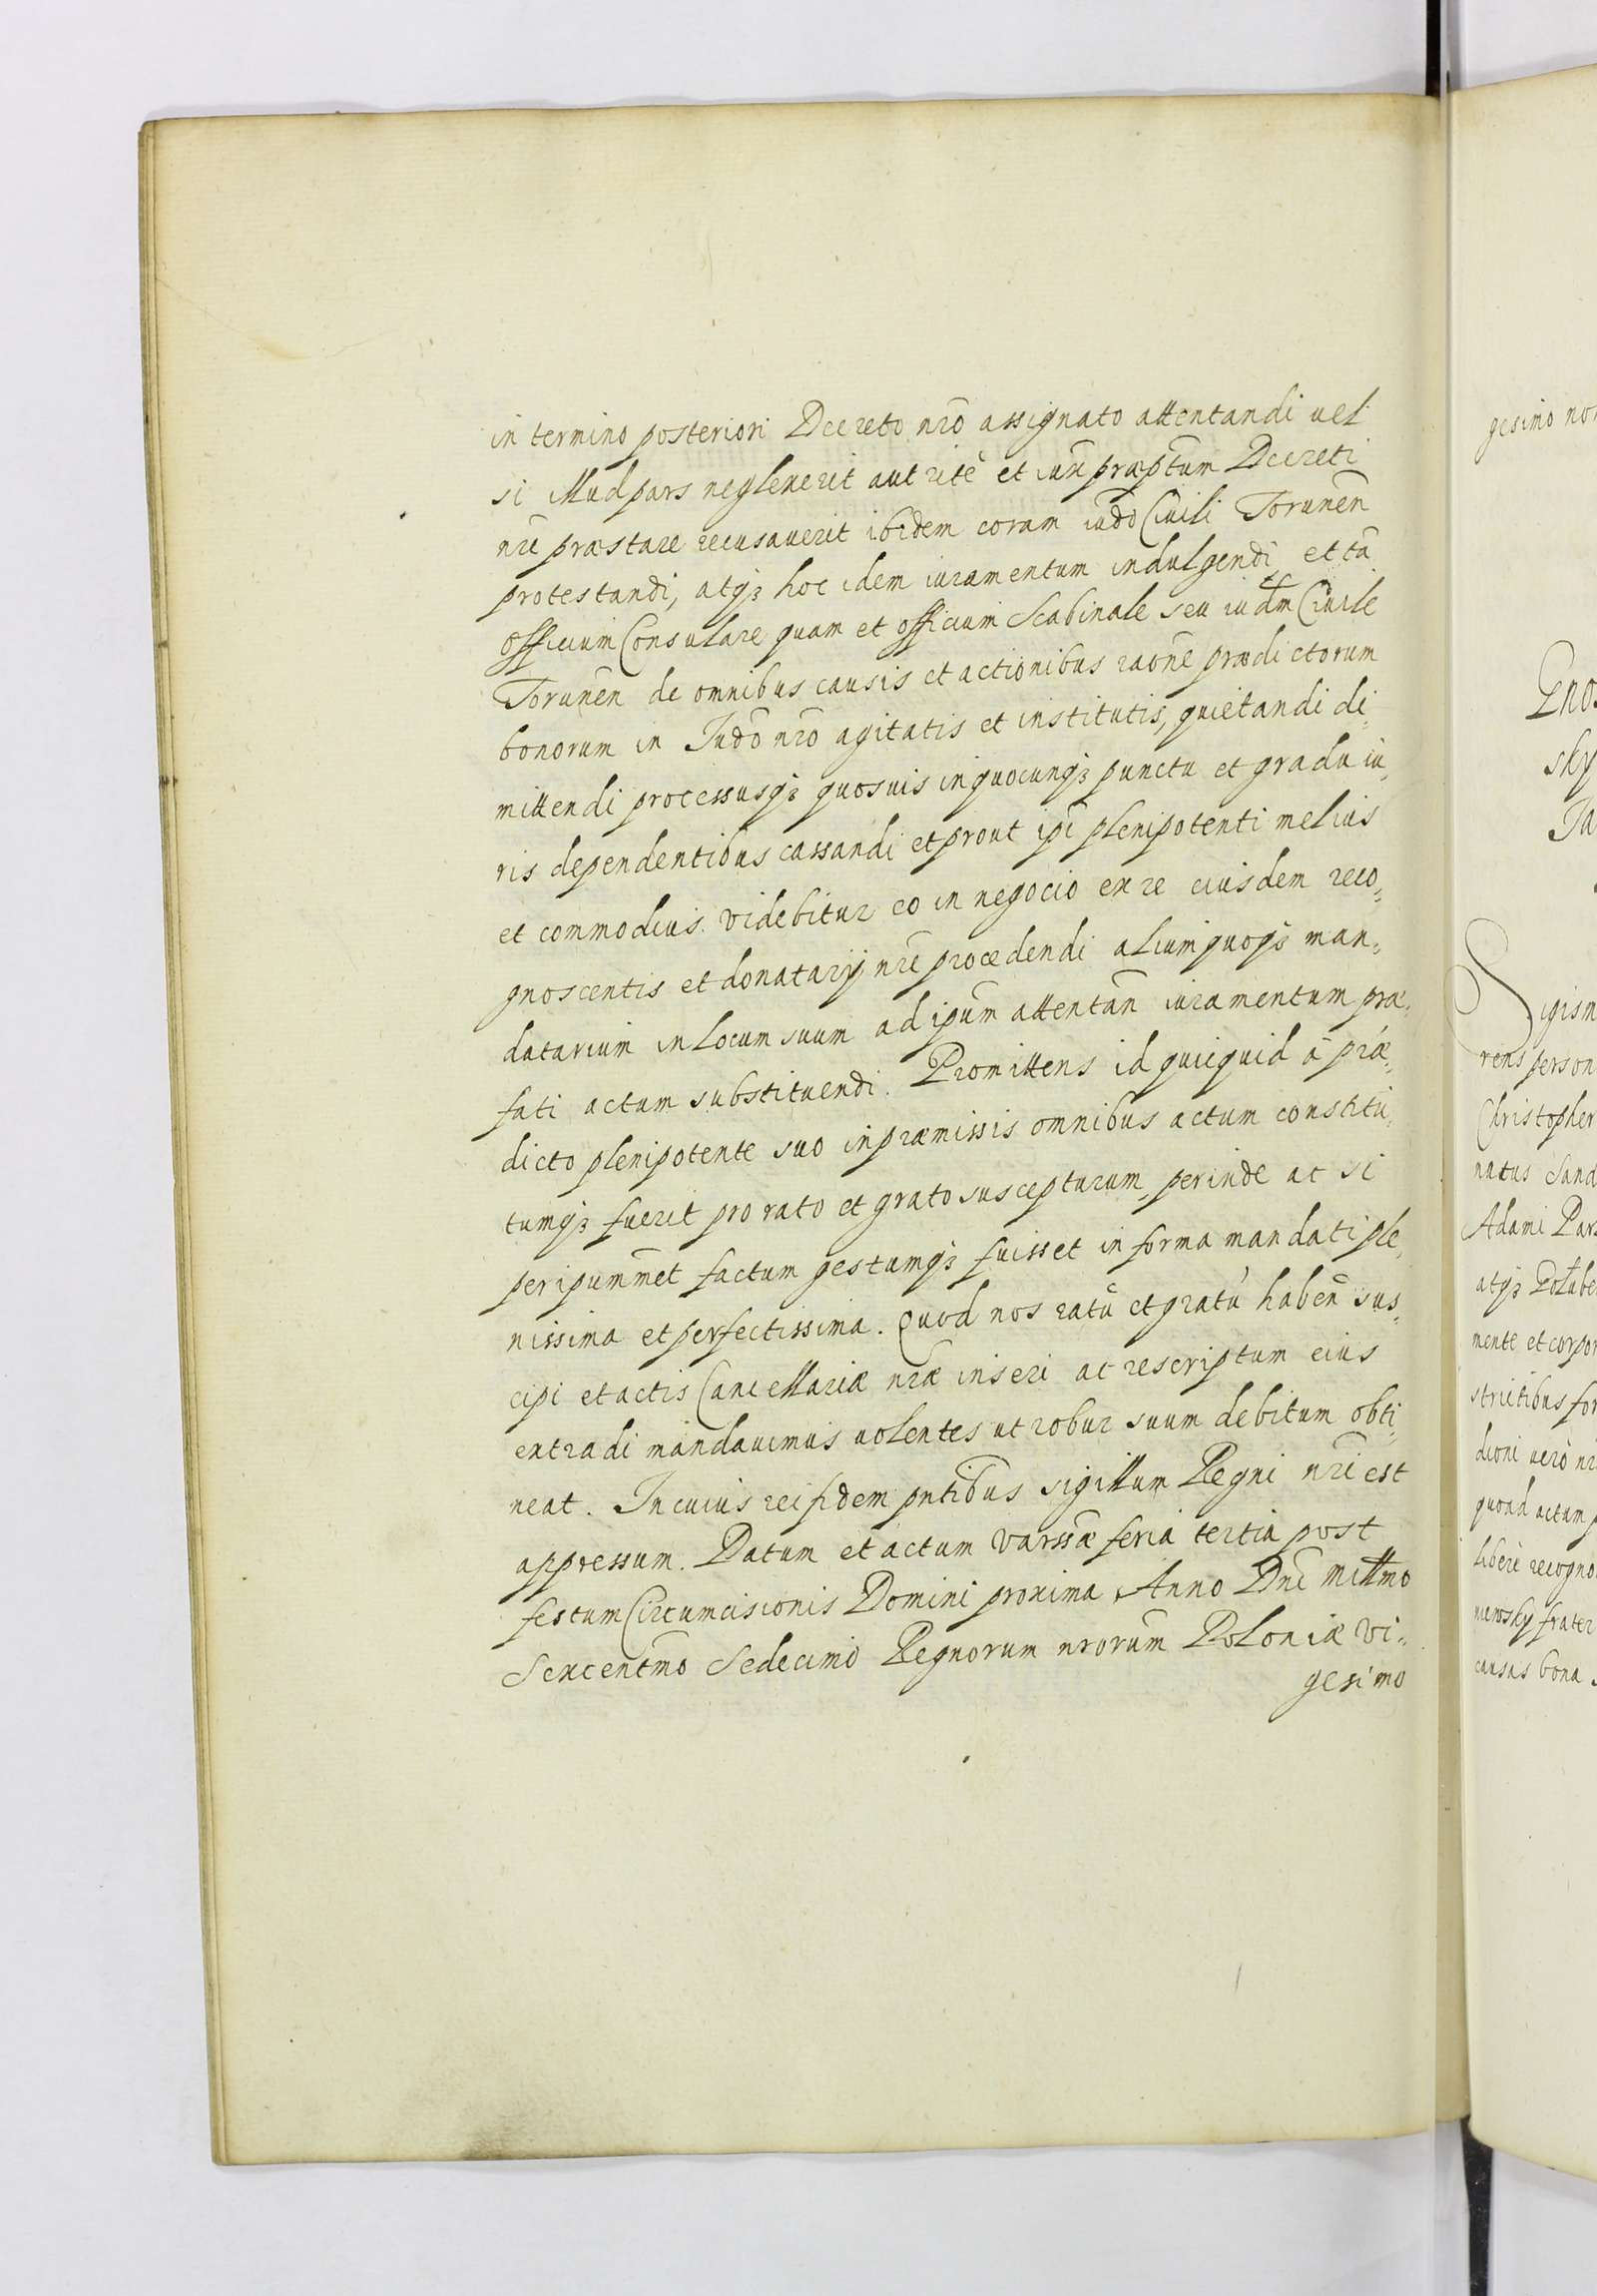 in termino posteriori Decreto nr̄o assignato attentandi uel
si illud pars neglexerit aut ritè et iux̄ præsp̄tum Decreti
nr̄i præstare recusauerit ibidem coram iud̄o Ciuili Torunen̄
protestandi, atqꝫ hoc idem iuramentum indulgendi, et tā
officium Consulare quam et officium Scabinale seu iud̄m Ciuile
Torunen̄ de omnibus causis et actionibus raōne prædictorum
bonorum in Iud̄o nr̄o agitatis et institutis, quietandi di,,
mittendi processusqꝫ quosuis in quocunqꝫ punctu et gradu iu,,
ris dependentibus cassandi et prout ip̄i plenipotenti melius
et commodius videbitur eo in negocio ex re eiusdem reco,,
gnoscentis et donatarij nr̄i procedendi alium quoqꝫ man,,
datarium in locum suum ad ip̄um attentan̄ iuramentum præ,,
fati actum substituendi. Promittens id quicquid à præ,,
dicto plenipotente suo in præmissis omnibus actum constitu,,
tumqꝫ fuerit pro rato et grato suscepturum, perinde ac si
per ipum̄met factum gestumqꝫ fuisset in forma mandati ple,,
nissima et perfectissima. Quod nos ratū et gratū haben̄ sus,,
cipi et actis Cancellariæ nr̄æ inseri ac rescriptum eius
extradi mandauimus uolentes ut robur suum debitum obti,,
neat. In cuius rei fidem pn̄tibus sigillum Regni nr̄i est
appressum. Datum et actum Varss̄æ feria tertia post
festum Circumcisionis Domini proxima Anno Dn̄i Mill̄mo
Sexcentm̄o Sedecimo Regnorum nrorum̄ Poloniæ Vi,,
gesimo
gesimo
Sigism
rens person
Christopher
natus Sand
Adami
atqꝫ
mente et corpor
dioni uerò
quoad actum
liberè recogno
frater
causas bona